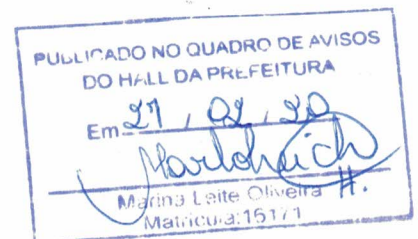 PUBLICADO NO QUADRO DE AVISOS
DO HALL DA PREFEITURA
Em 27 / 02 / 20
Marina Leite Oliveira H.
Matrícula:15171